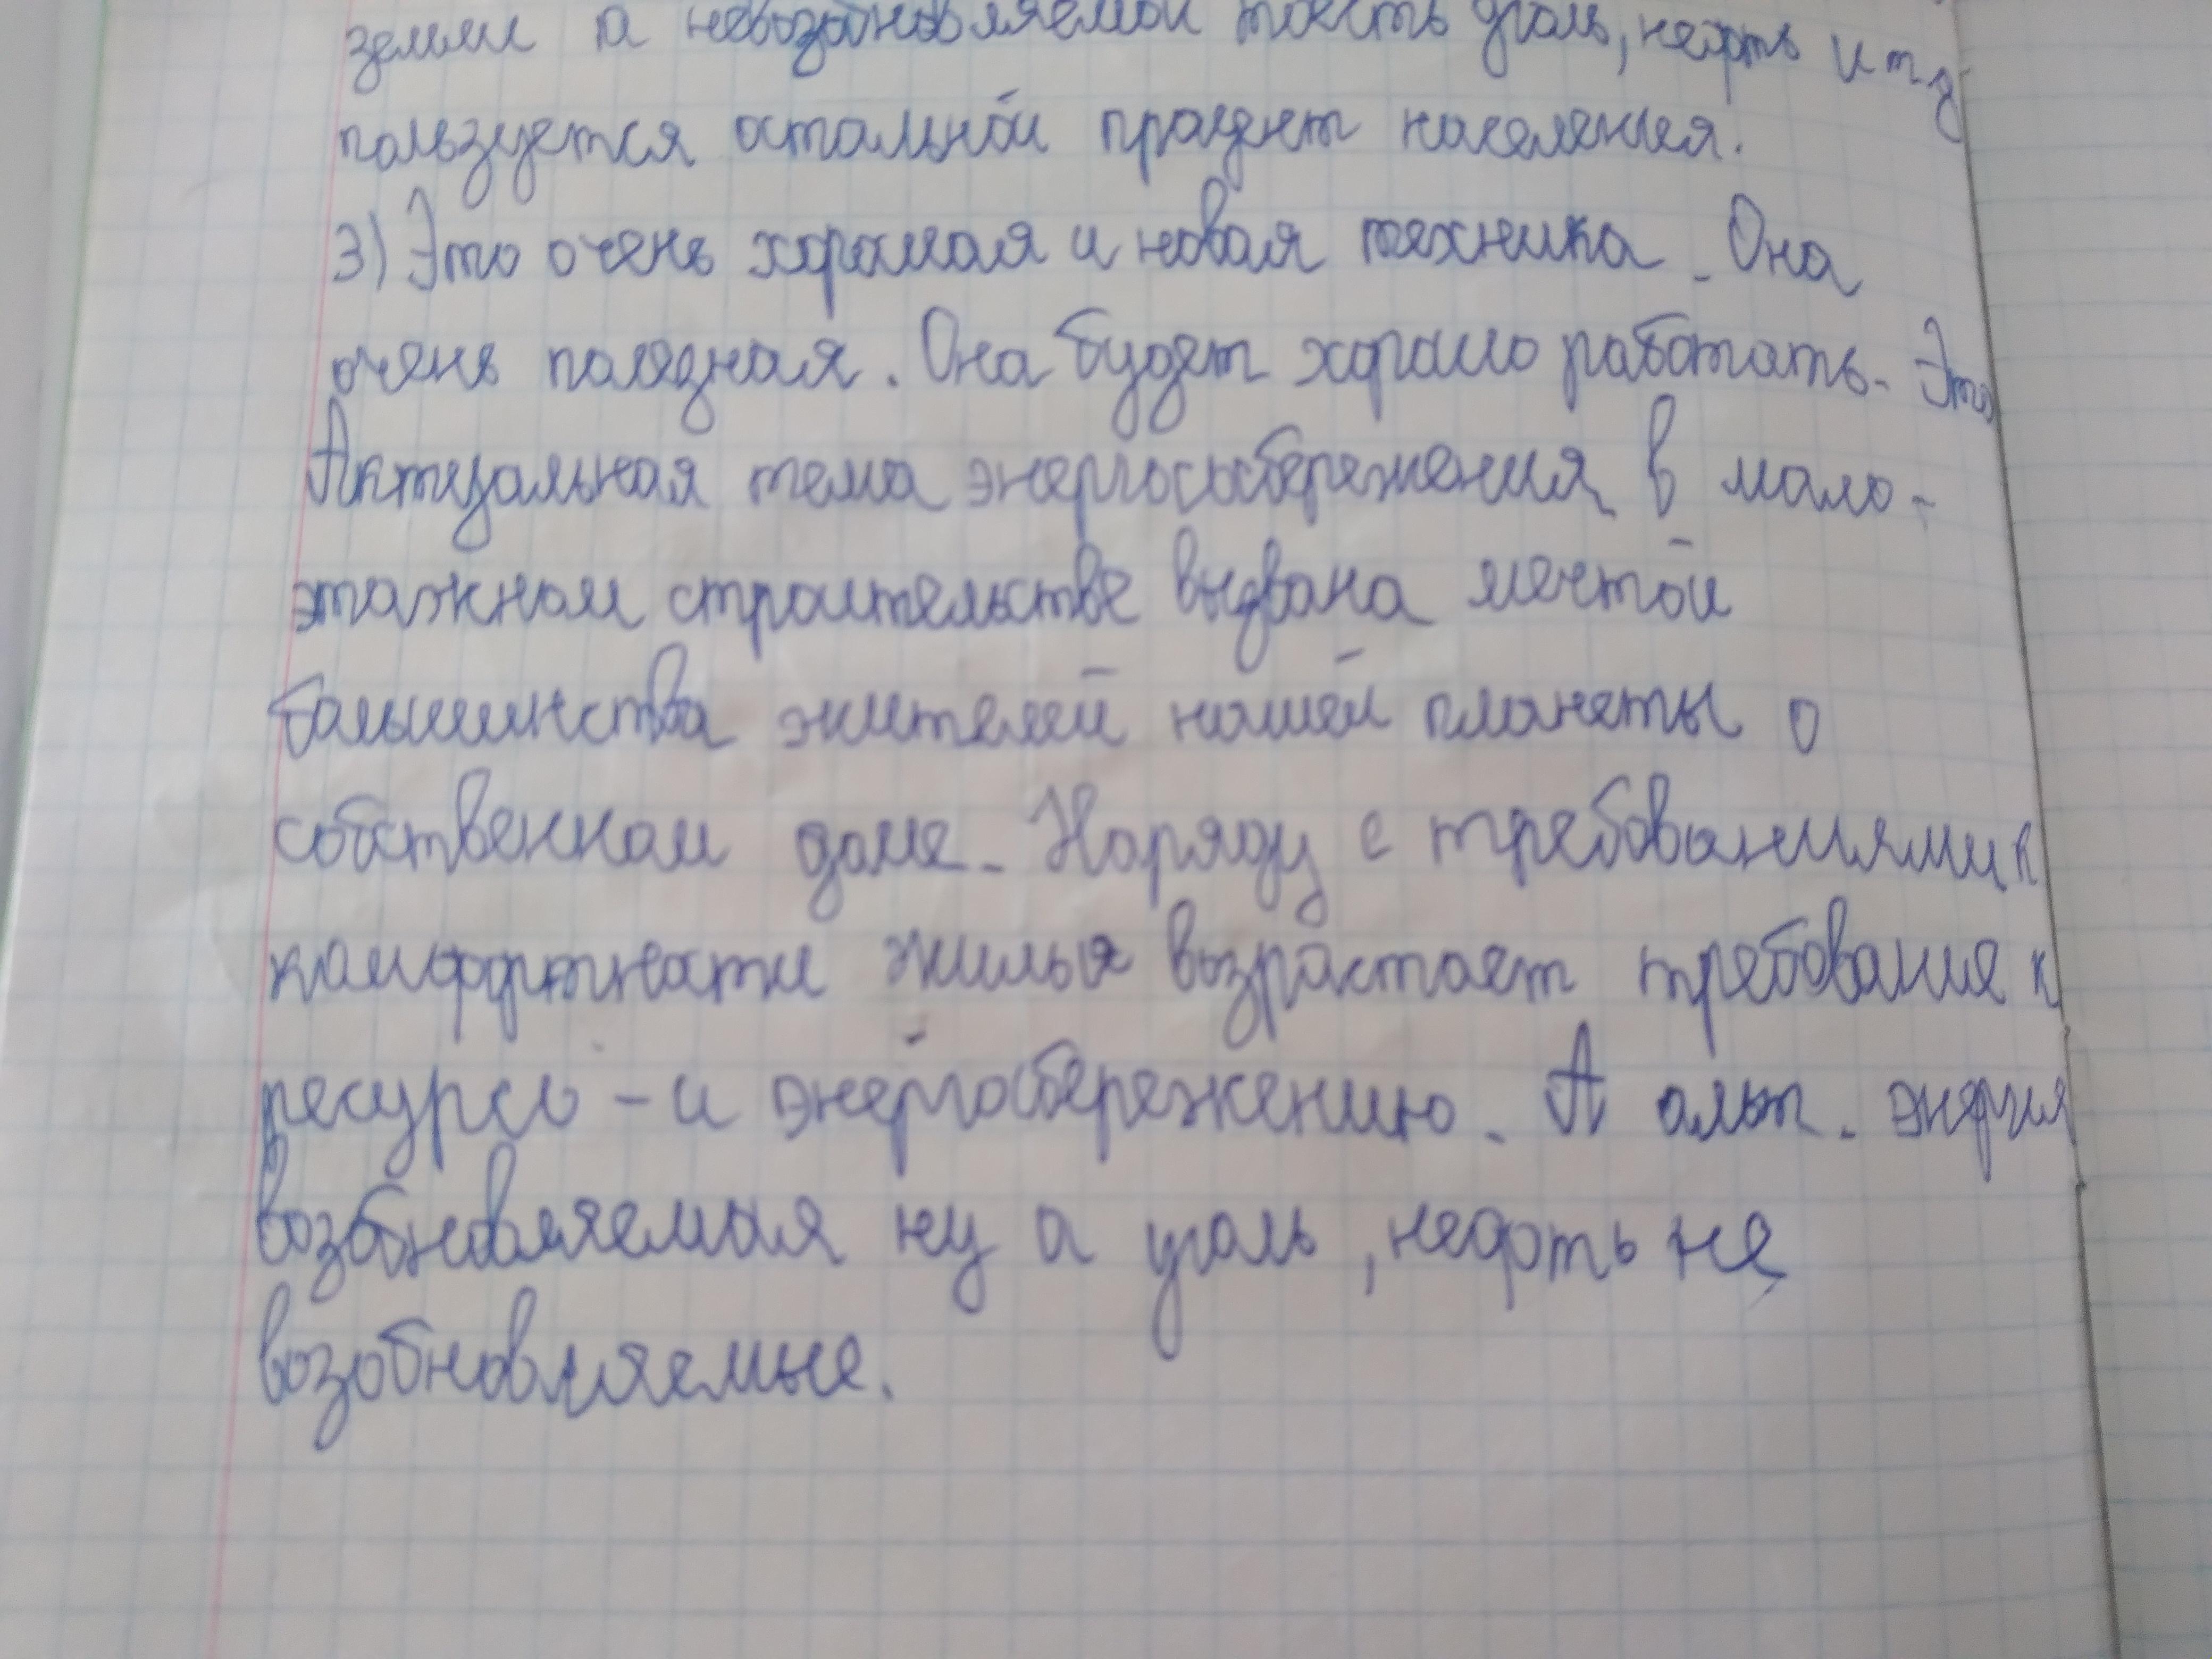 земли а невозобновляемой тоесть уголь, нефть и т д
пользуется остальной процент населения.
3) Это очень хорошая и новая техника. Она
очень полезная. Она будет хорошо работать. Это
Актуальная тема энергососбережения в мало-
этажном строительстве вызвана мечтой
большинства жителей нашей планеты о
собственном доме. Наряду с требованиями к
комфортности жилья возрастает требования к
ресурсо - и энергосбережению. А альт. энергия
возобновляемая ну а уголь, нефть не
возобновляемые.